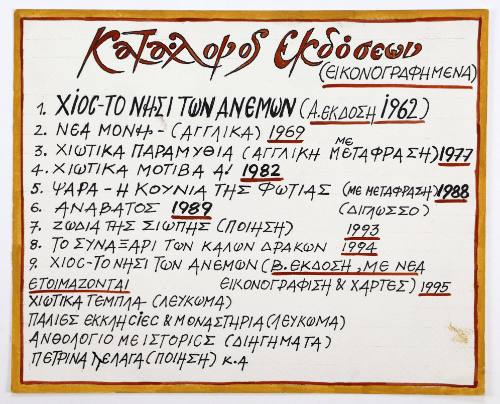 Κατάλογος Εκδόσεων
(ΕΙΚΟΝΟΓΡΑΦΗΜΕΝΑ)
1. ΧΙΟΣ-ΤΟ ΝΗΣΙ ΤΩΝ ΑΝΕΜΩΝ (Α.ΕΚΔΟΣΗ 1962)
2. ΝΕΑ ΜΟΝΗ - (ΑΓΓΛΙΚΑ) 1969
3. ΧΙΩΤΙΚΑ ΠΑΡΑΜΥΘΙΑ (ΑΓΓΛΙΚΗ ΜΕ ΜΕΤΑΦΡΑΣΗ) 1977
4. ΧΙΩΤΙΚΑ ΜΟΤΙΒΑ Α' 1982
5. ΨΑΡΑ - Η ΚΟΥΝΙΑ ΤΗΣ ΦΩΤΙΑΣ (ΜΕ ΜΕΤΑΦΡΑΣΗ) 1988
6. ΑΝΑΒΑΤΟΣ 1989 (ΔΙΓΛΩΣΣΟ)
7. ΖΩΔΙΑ ΤΗΣ ΣΙΩΠΗΣ (ΠΟΙΗΣΗ) 1993
8. ΤΟ ΣΥΝΑΞΑΡΙ ΤΩΝ ΚΑΛΩΝ ΔΡΑΚΩΝ 1994
9. ΧΙΟΣ-ΤΟ ΝΗΣΙ ΤΩΝ ΑΝΕΜΩΝ (Β.ΕΚΔΟΣΗ, ΜΕ ΝΕΑ
ΕΤΟΙΜΑΖΟΝΤΑΙ ΕΙΚΟΝΟΓΡΑΦΙΣΗ & ΧΑΡΤΕΣ) 1995
ΧΙΩΤΙΚΑ ΤΕΜΠΛΑ - (ΛΕΥΚΩΜΑ)
ΠΑΛΙΕΣ ΕΚΚΛΗΣΙΕΣ & ΜΟΝΑΣΤΗΡΙΑ (ΛΕΥΚΩΜΑ)
ΑΝΘΟΛΟΓΙΟ ΜΕ ΙΣΤΟΡΙΕΣ (ΔΙΗΓΗΜΑΤΑ)
ΠΕΤΡΙΝΑ ΠΕΛΑΓΑ (ΠΟΙΗΣΗ) Κ.Α